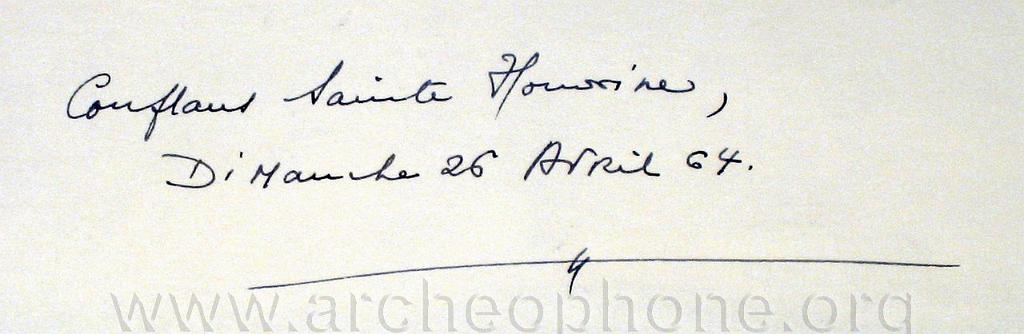 Conflans Sainte Honorine,
Dimanche 26 Avril 64.
www.archeophone.org